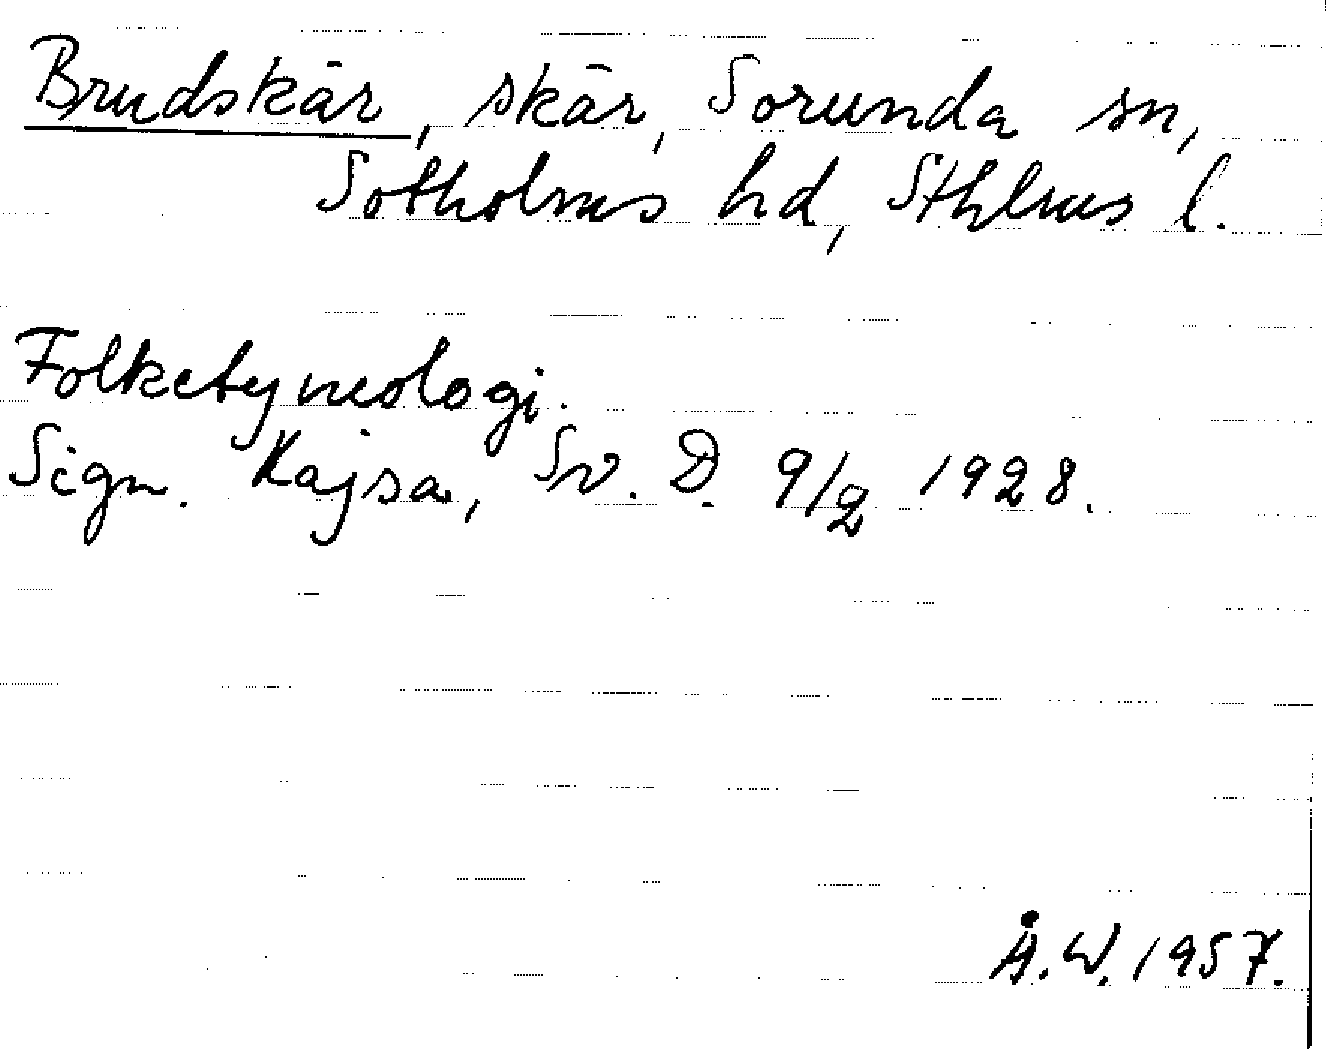 Brudskär, skär, Sorunda sn,
Sotholms hd, Sthlms l.
Folketymologi.
Sign. Kajsa, Sv. D. 9/2 1928.
Å.W. 1957.